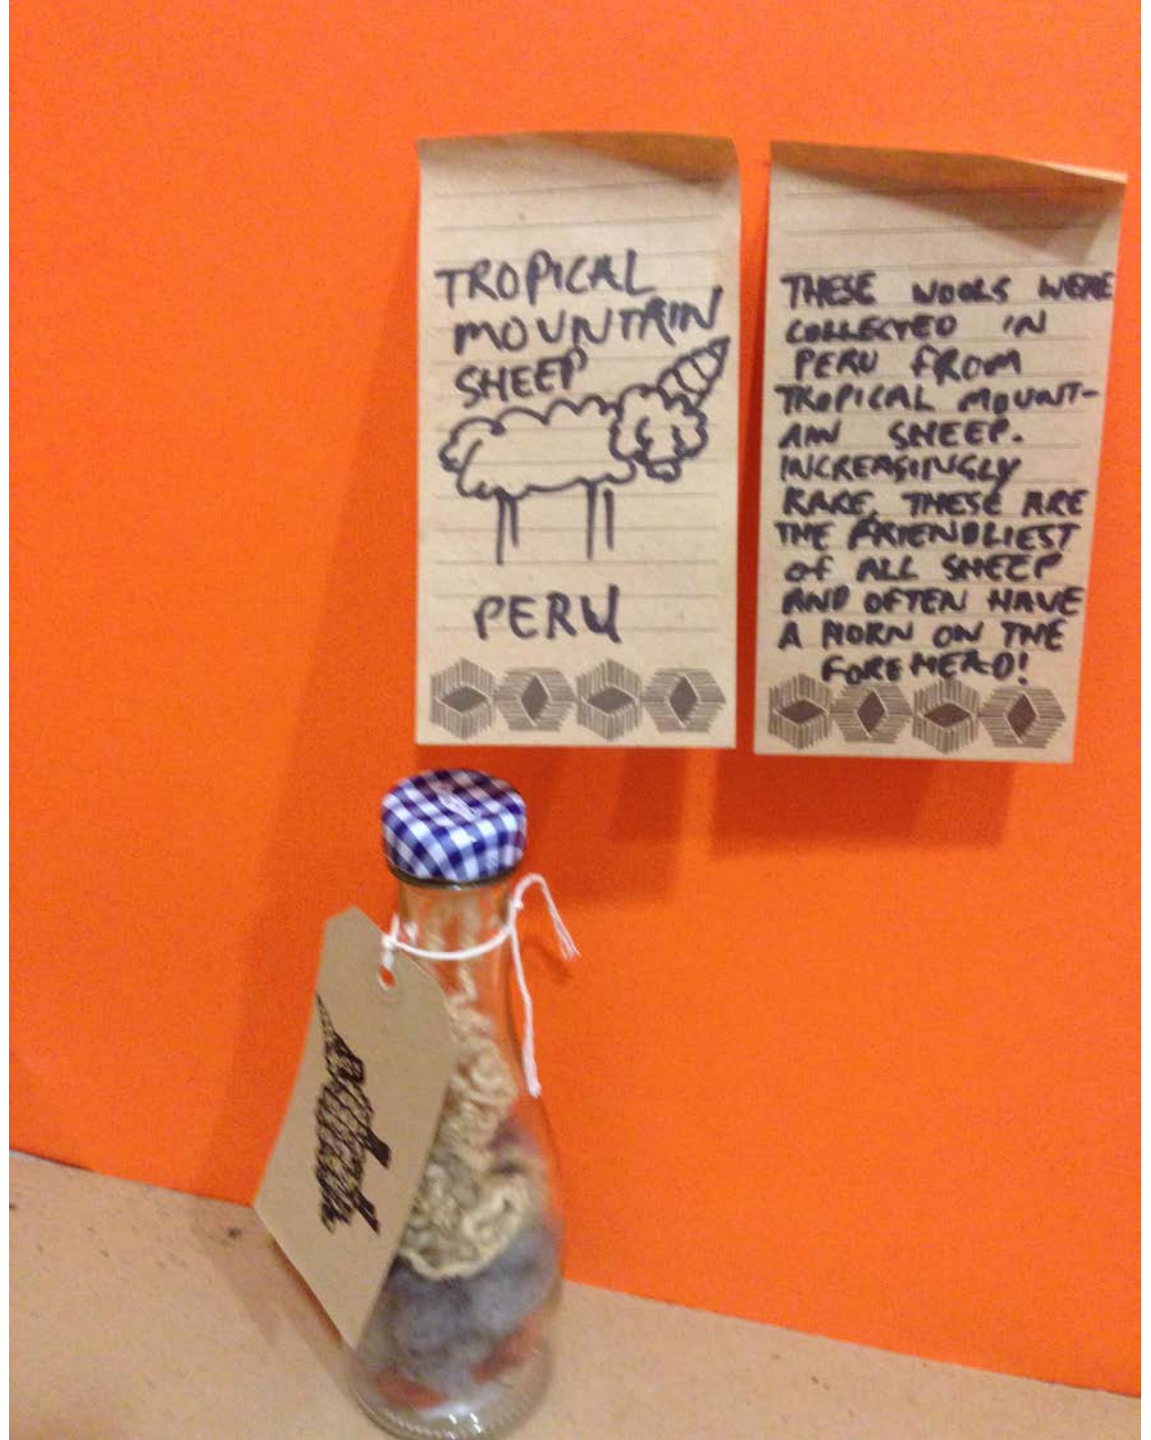 TROPICAL
MOUNTAIN
SHEEP
PERU
THESE WOOLS WERE
COLLECTED IN
PERU FROM
TROPICAL MOUNT-
AIN SHEEP.
INCREASINGLY
RARE, THESE ARE
THE FRIENDLIEST
OF ALL SHEEP
AND OFTEN HAVE
A HORN ON THE
FOREHEAD!